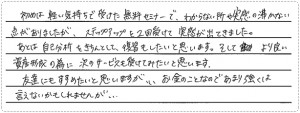 初めは軽い気持ちで受けた無料セミナーで、わからない所や実感の湧かない
点がありましたが、ステップアップと2回受けて実感が出てきました。
あとは自分がきちんとして、復習をしたいと思います。そして より良い
資産形成の為に次のサービスも受けてみたいと思います。
友達にもすすめたいと思いますが、、お金のことなのであまり強くは
言えないかもしれませんが…